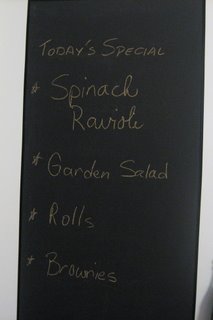 Today's Special
* Spinach
Ravioli
* Garden Salad
* Rolls
* Brownies